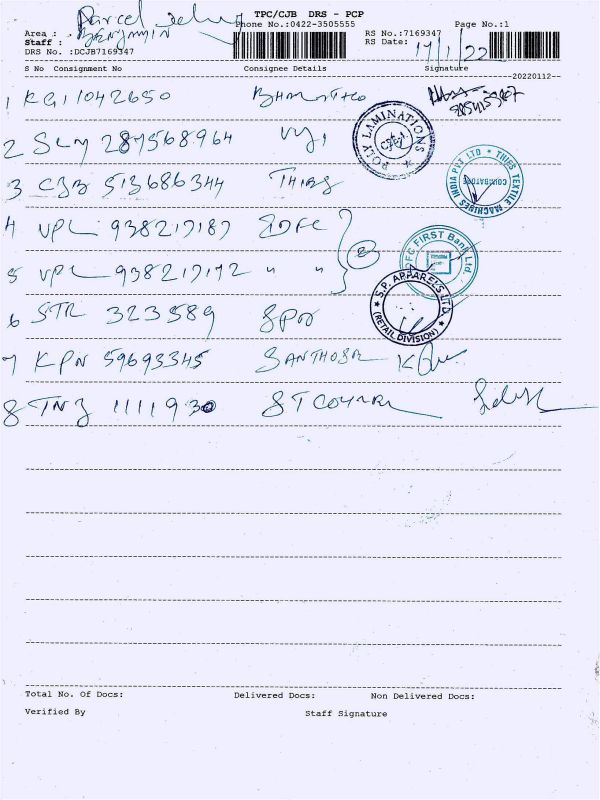 Parcel
TPC/CJB DRS - PCP
Phone No.:0422-3505555
Page No.:1
Area :
BENJAMIN
Staff :
DRS No. :DCJB7169347
RS No.:7169347
RS Date: 17/1/22
S No Consignment No Consignee Details Signature
20220112
1 KGI1042650
2 SLM 287568964
POLY LAMINATIONS
3 CJB 513686344 THIRS
THIRS TEXTILE MACHINES INDIA PVT LTD
COIMBATORE
4 VPL 938217187 IDFC
2
IDFC FIRST Bank Ltd.
5 VPL 938217172 " "
S.P. APPARELS LTD
(RETAIL DIVISION)
6 STR 323589
7 KPN 59693345 SANTHOSH
8 TNJ 1111930
Total No. Of Docs: Delivered Docs: Non Delivered Docs:
Verified By Staff Signature